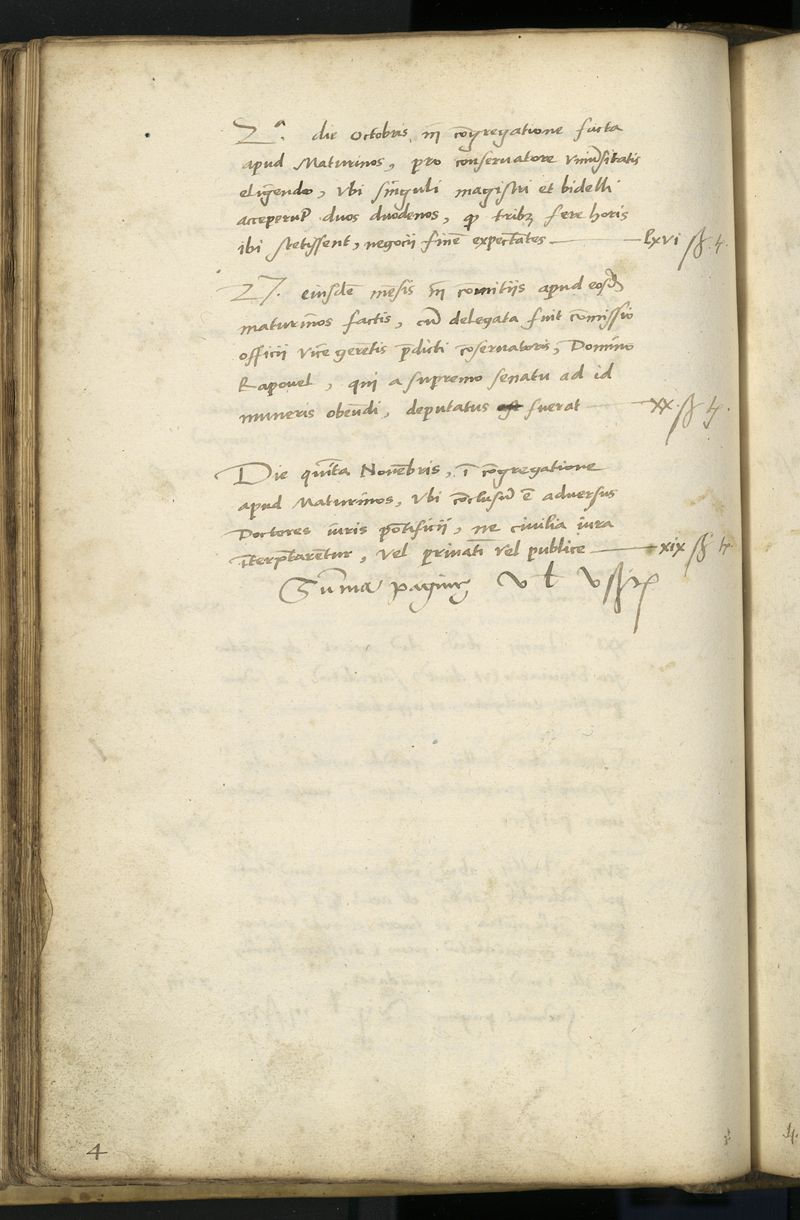 2ª. die octobris, in cōgregatione facta
apud Maturinos, pro conservatore Univ̄sitatis
eligēndo, Ubi singuli magistri et bidelli
acceperūt duos duodenos, qꝫ tribꝫ fere horis
ibi stetissent, negocii finē expectātes — lxvi ß. t.
27. eiusdē mēsis in comitiis apud eosdē
maturinos factis, cū delegata fuit cōmissio
officii vice gerētis p̄dicti cōservatoris, Domino
Rapouel, qui a supremo senatu ad id
muneris obeūdi, deputatus fuerat — xx. ß t.
Die quīta Novēbris, ī cōgregatione
apud Maturinos, Ubi cōclusū ē adversus
Doctores iuris pōtificii, ne civilia iura
īterp̄tarētur, vel privatī vel publice — xix ß t.
Sūma paginę v ł v ß t
4